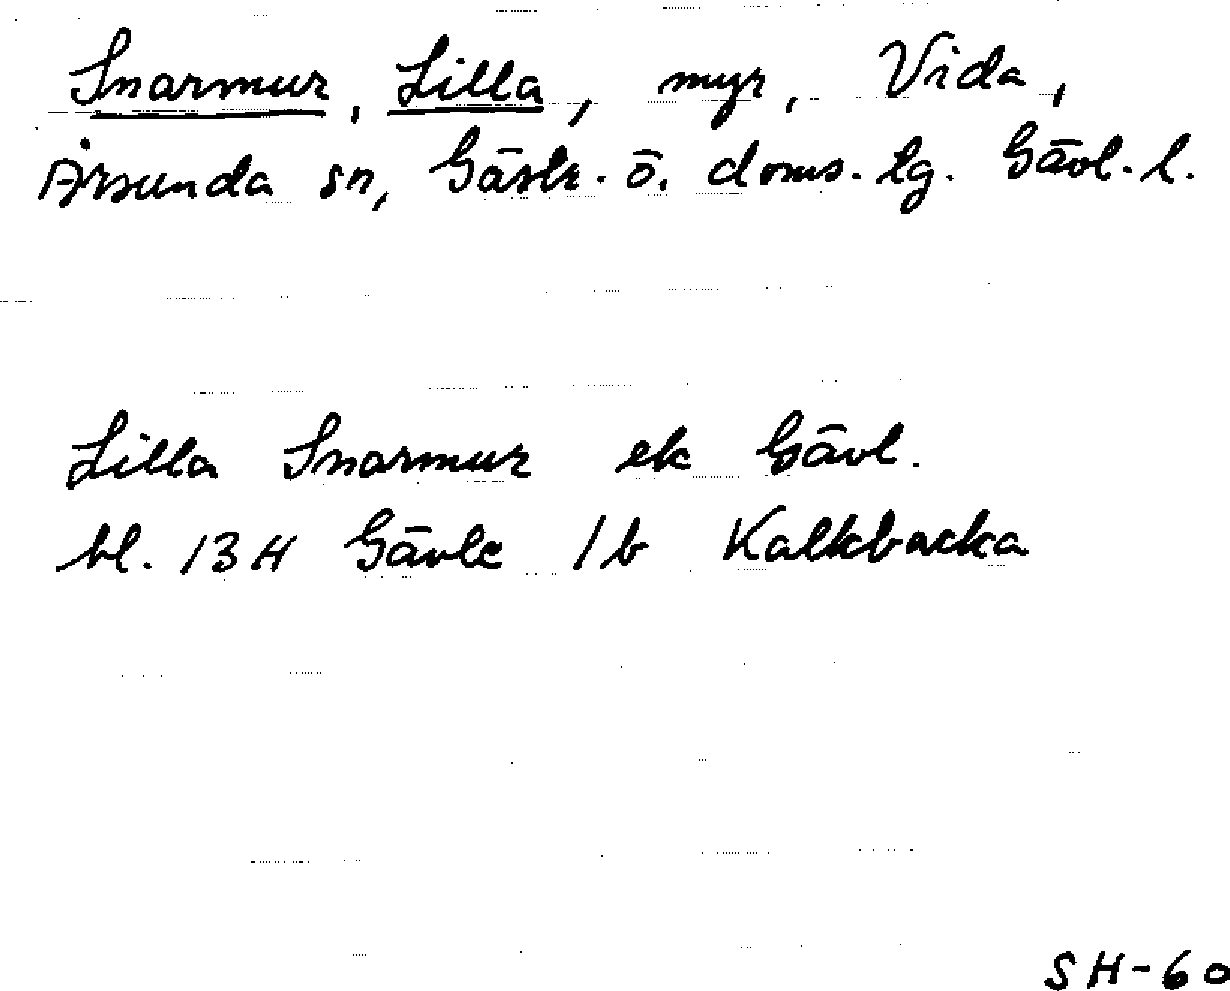 Snarmur, Lilla, myr, Vida,
Årsunda sn, Gästr. ö. doms. tg. Gävl. l.
Lilla Snarmur ek Gävl.
bl. 13H Gävle 1b Kalkbacka
SH-60